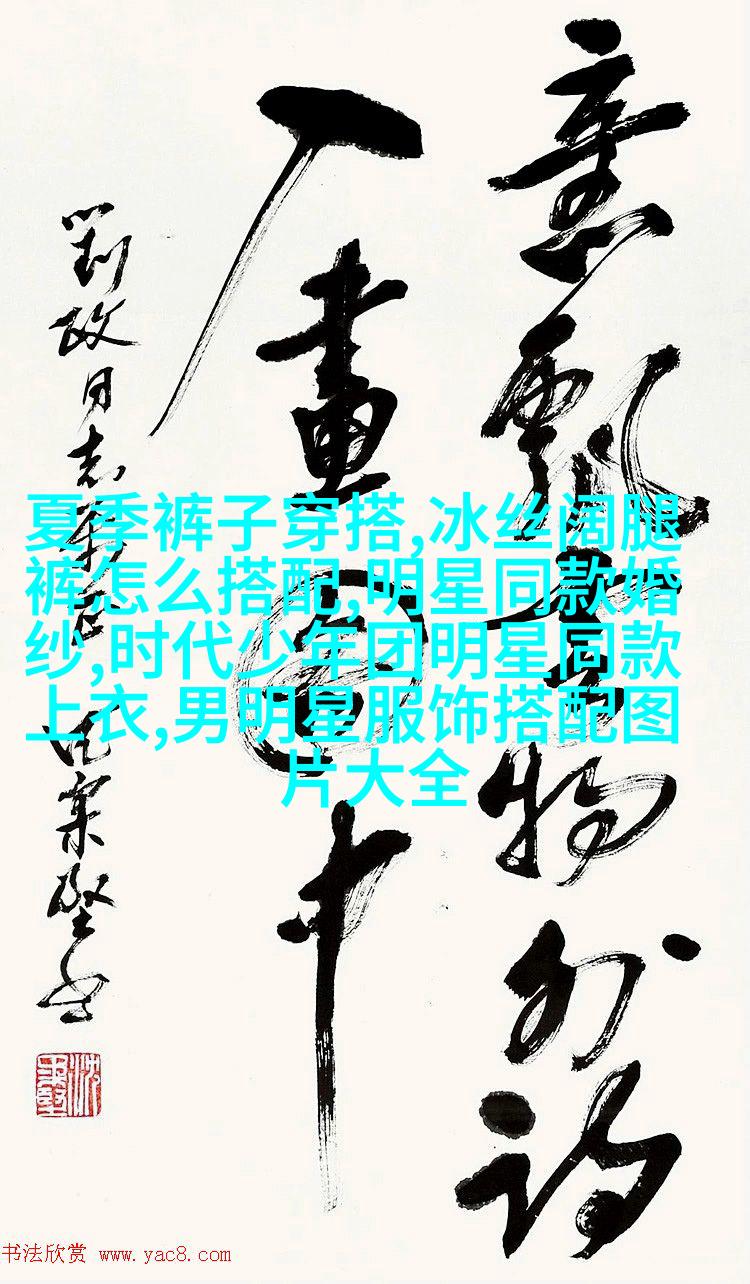 意飘雲物外詩
入畫圖中
劉政同志
夏季裤子穿搭,冰丝阔腿
裤怎么搭配,明星同款婚
纱,时代少年团明星同款
上衣,男明星服饰搭配图
片大全
书法欣赏 www.yac8.com